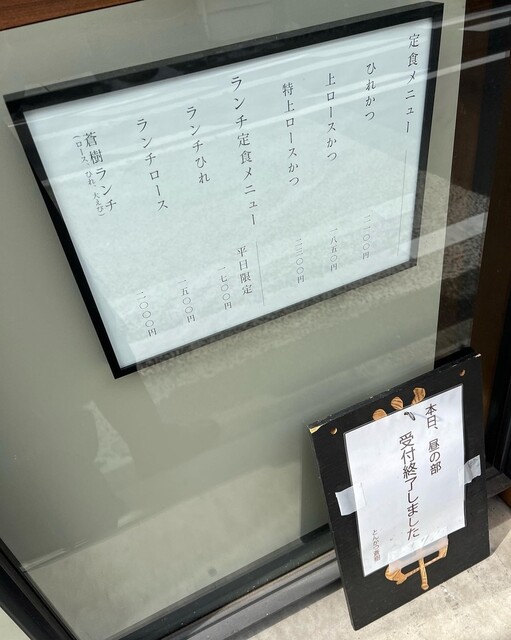 定食メニュー
ひれかつ
上ロースかつ 一八五〇円
特上ロースかつ 二二〇〇円
ランチ定食メニュー 平日限定
ランチひれ 一七〇〇円
ランチロース 一五〇〇円
蒼樹ランチ 二〇〇〇円
(ロース、ひれ、大えび)
本日、昼の部
受付終了しました
とんかつ 蒼樹